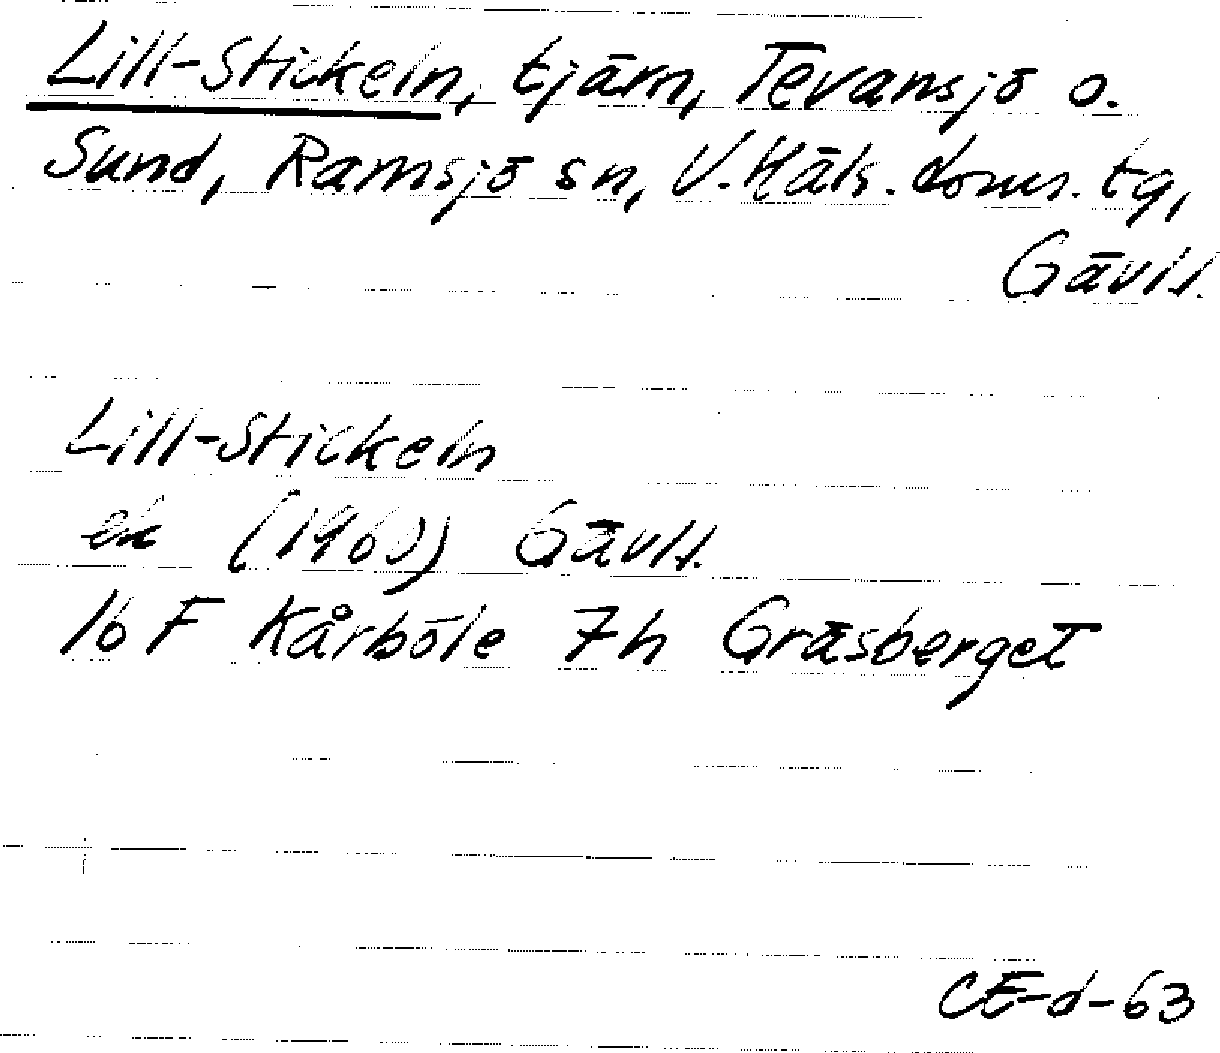 Lill-Stickeln, tjärn, Tevansjö o.
Sund, Ramsjö sn, V. Häls. doms. tg,
Gävl.
Lill-Stickeln
ek (1960) Gävl.
16 F Kårböle 7h Gräsberget
CE-d-63